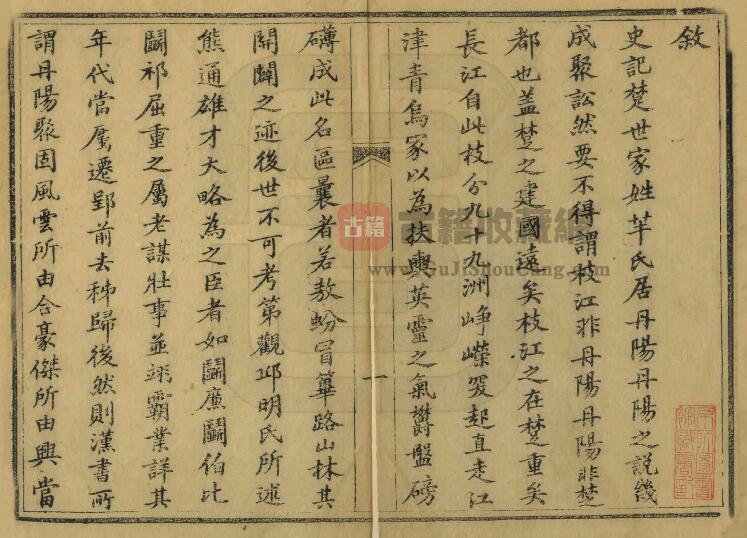 敘
史記楚世家姓芈氏居丹陽丹陽之說幾
成聚訟然要不得謂枝江非丹陽丹陽非楚
都也蓋楚之建國遠矣枝江之在楚重矣
長江自此枝分九十九洲崢嶸突起直走江
津青烏家以為扶輿英靈之氣鬱盤磅
礴成此名區曩者若敖蚡冒篳路山林其
開闢之迹後世不可考第觀邱明氏所述
熊通雄才大略為之臣者如鬭廉鬭伯比
鬭祁屈重之屬老謀壯事並翊霸業詳其
年代當屬遷郢前去秭歸後然則漢書所
謂丹陽聚固風雲所由合豪傑所由興當
一
古籍
古籍收藏網
www.GuJiShouCang.com